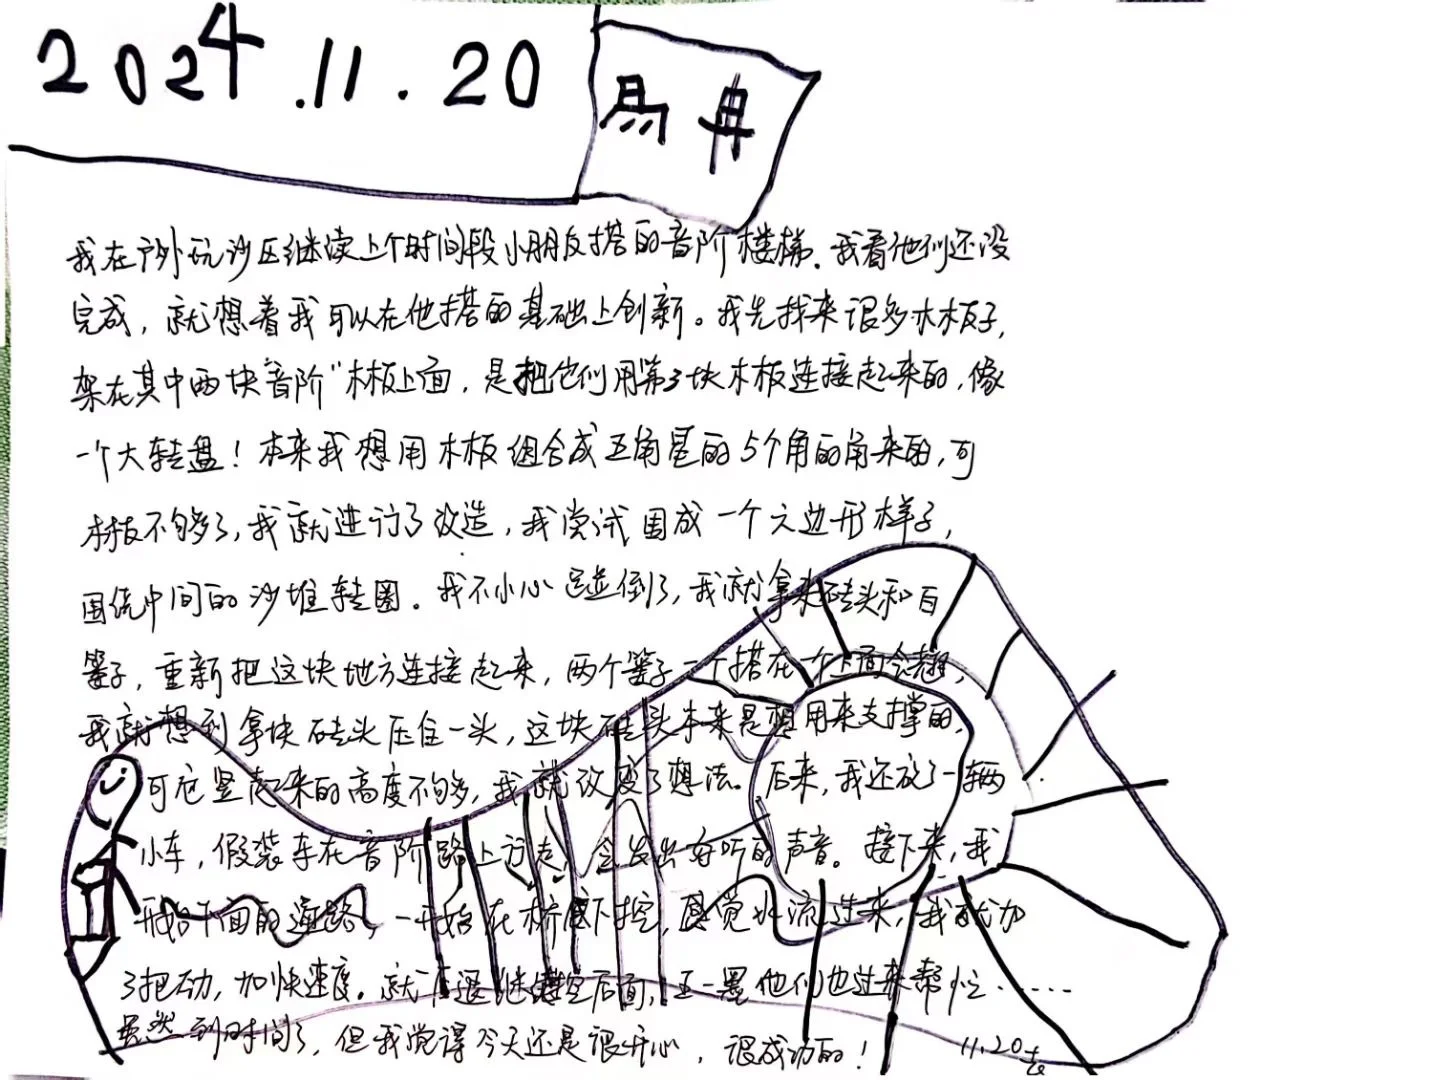 2024.11.20
马冉
我在户外玩沙区继续上个时间段小朋友搭的音阶楼梯。我看他们还没
完成，就想着我可以在他搭的基础上创新。我先找来很多木板子，
架在其中两块“音阶”木板上面，是把他们用第3块木板连接起来的，像
一个大转盘！本来我想用木板组合成五角星的5个角的角来的，可
木板不够了，我就进行了改造，我尝试围成一个六边形样子，
围绕中间的沙堆转圈。我不小心碰倒了，我就拿来砖头和百
篓子，重新把这块地方连接起来，两个篓子一个搭在一个上面会翘，
我就想到拿块砖头压住一头，这块砖头本来是想用来支撑的，
可它竖起来的高度不够，我就改变了想法。后来，我还放了一辆
小车，假装车在音阶路上行走，会发出好听的声音。接下来，我
开始下面的道路，一开始在桥底下挖，感觉水流过来，我就加
了把劲，加快速度。就后退继续挖后面，五一墨他们也过来帮忙……
虽然到时间了，但我觉得今天还是很开心，很成功的！
11.20